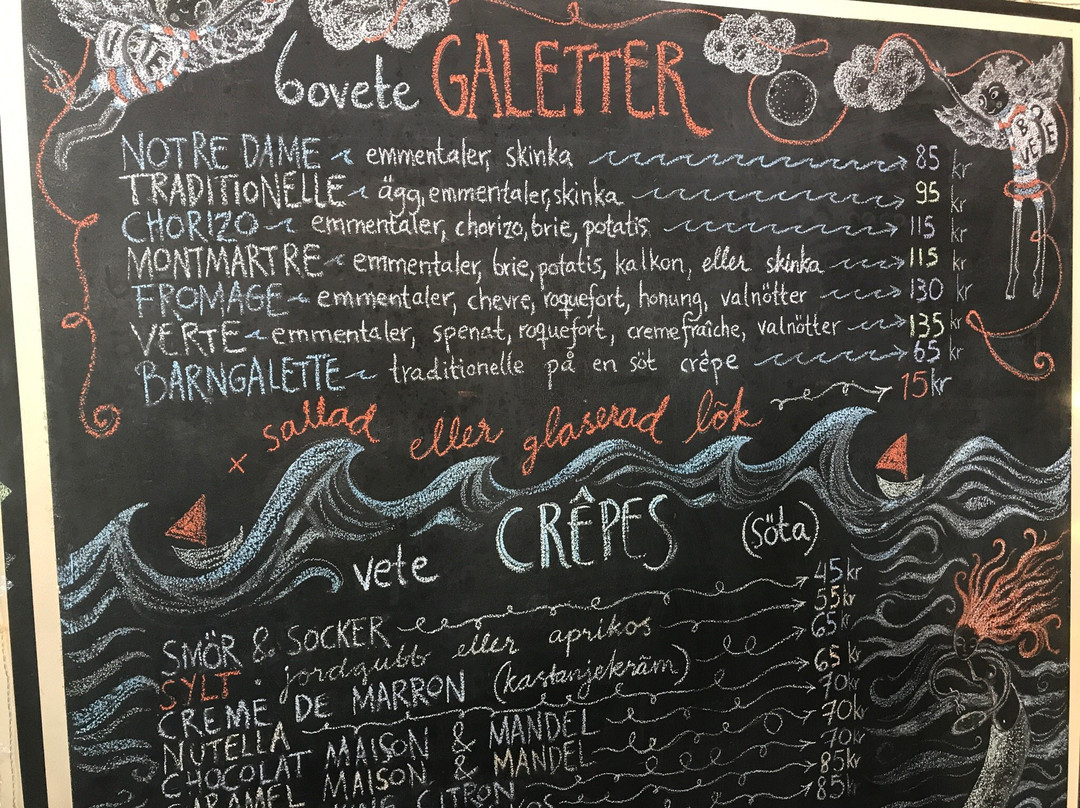 VETE
BOVETE
bovete GALETTER
NOTRE DAME emmentaler, skinka 85 kr
TRADITIONELLE ägg, emmentaler, skinka 95 kr
CHORIZO emmentaler, chorizo, brie, potatis 115 kr
MONTMARTRE emmentaler, brie, potatis, kalkon, eller skinka 115 kr
FROMAGE emmentaler, chevre, roquefort, honung, valnötter 130 kr
VERTE emmentaler, spenat, roquefort, cremefraîche, valnötter 135 kr
BARNGALETTE traditionelle på en söt crêpe 65 kr
+ sallad eller glaserad lök 15 kr
vete CRÊPES (söta)
SMÖR & SOCKER 45 kr
SYLT · jordgubb eller aprikos 55 kr
CREME DE MARRON (kastanjekräm) 65 kr
NUTELLA 65 kr
CHOCOLAT MAISON & MANDEL 70 kr
CARAMEL MAISON & MANDEL 70 kr
CITRON 70 kr
85 kr
85 kr